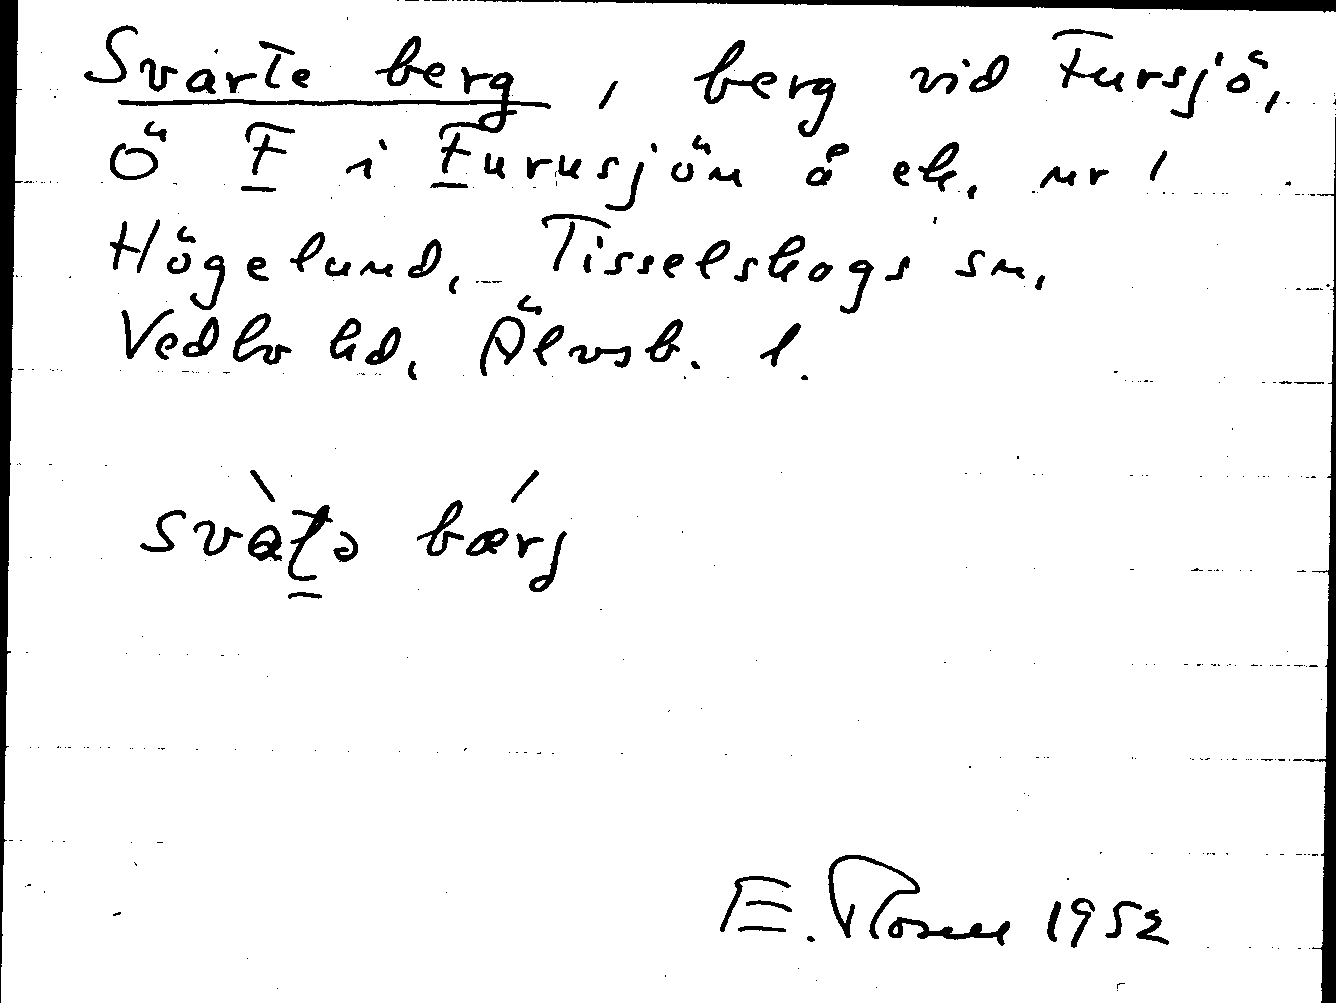 Svarte berg, berg vid Fursjö,
Ö F i Furusjön å ek. nr 1
Högelund, Tisselskogs sn,
Vedbo hd, Älvsb. l.
svàʈə bærj
E. Rosell 1952